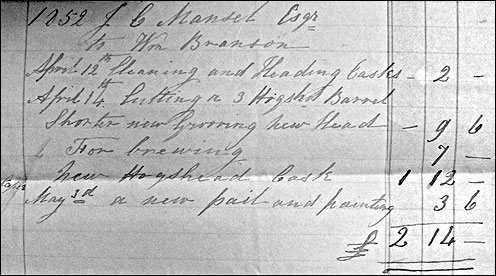 1852 J C Mansel Esqr
to Wm Branson
April 12th Cleaning and Heading Casks - 2 -
April 14th Cutting a 3 Hogshd Barrel
Shorter new Grooving new Head - 9 6
For brewing 7 -
new Hogshead Cask 1 12 -
May 3rd a new pail and painting 3 6
£ 2 14 -